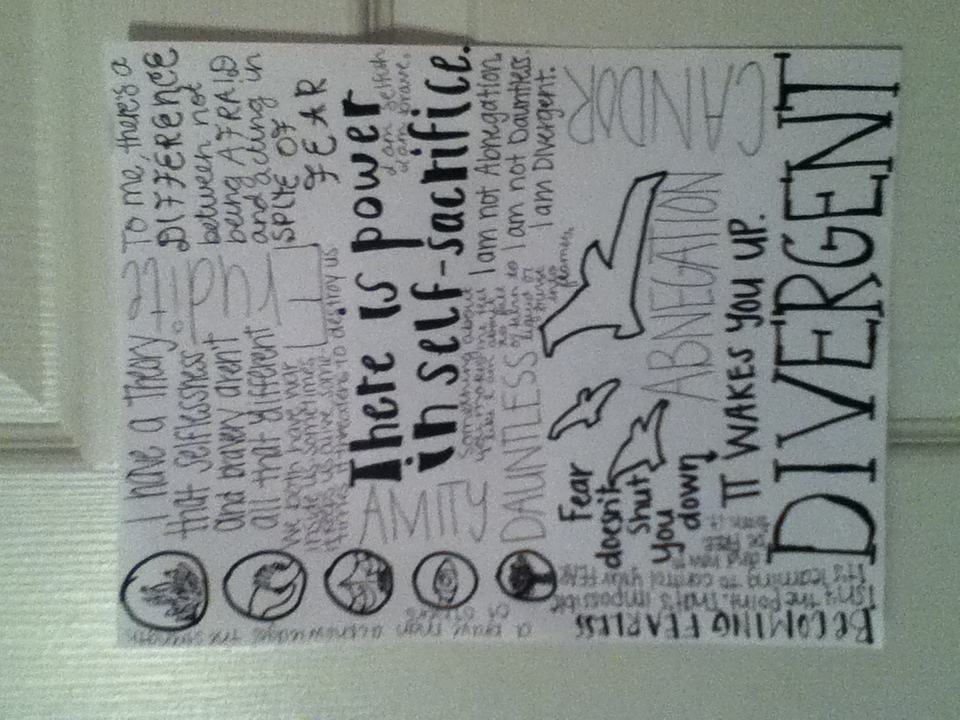 I have a theory
that selflessness
and bravery aren't
all that different
To me, there's a
DIFFERENCE
between not
being AFRAID
and acting in
SPITE OF
FEAR
We both have war
inside us sometimes
it keeps us alive some-
times it threatens to destroy us
There is power
in self-sacrifice.
I am selfish
I am brave.
AMITY
Something about
you making me feel
like I am about
to fall
or turn to
liquid or
burst
into
flames.
I am not Abnegation.
I am not Dauntless.
I am Divergent.
DAUNTLESS
CANDOR
ABNEGATION
Fear
doesn't
shut
you
down
IT WAKES YOU UP.
DIVERGENT
BECOMING FEARLESS
isn't the point. That's impossible
It's learning to control your FEAR
and how to
be FREE
from it.
a brave man acknowledges the strength
of others